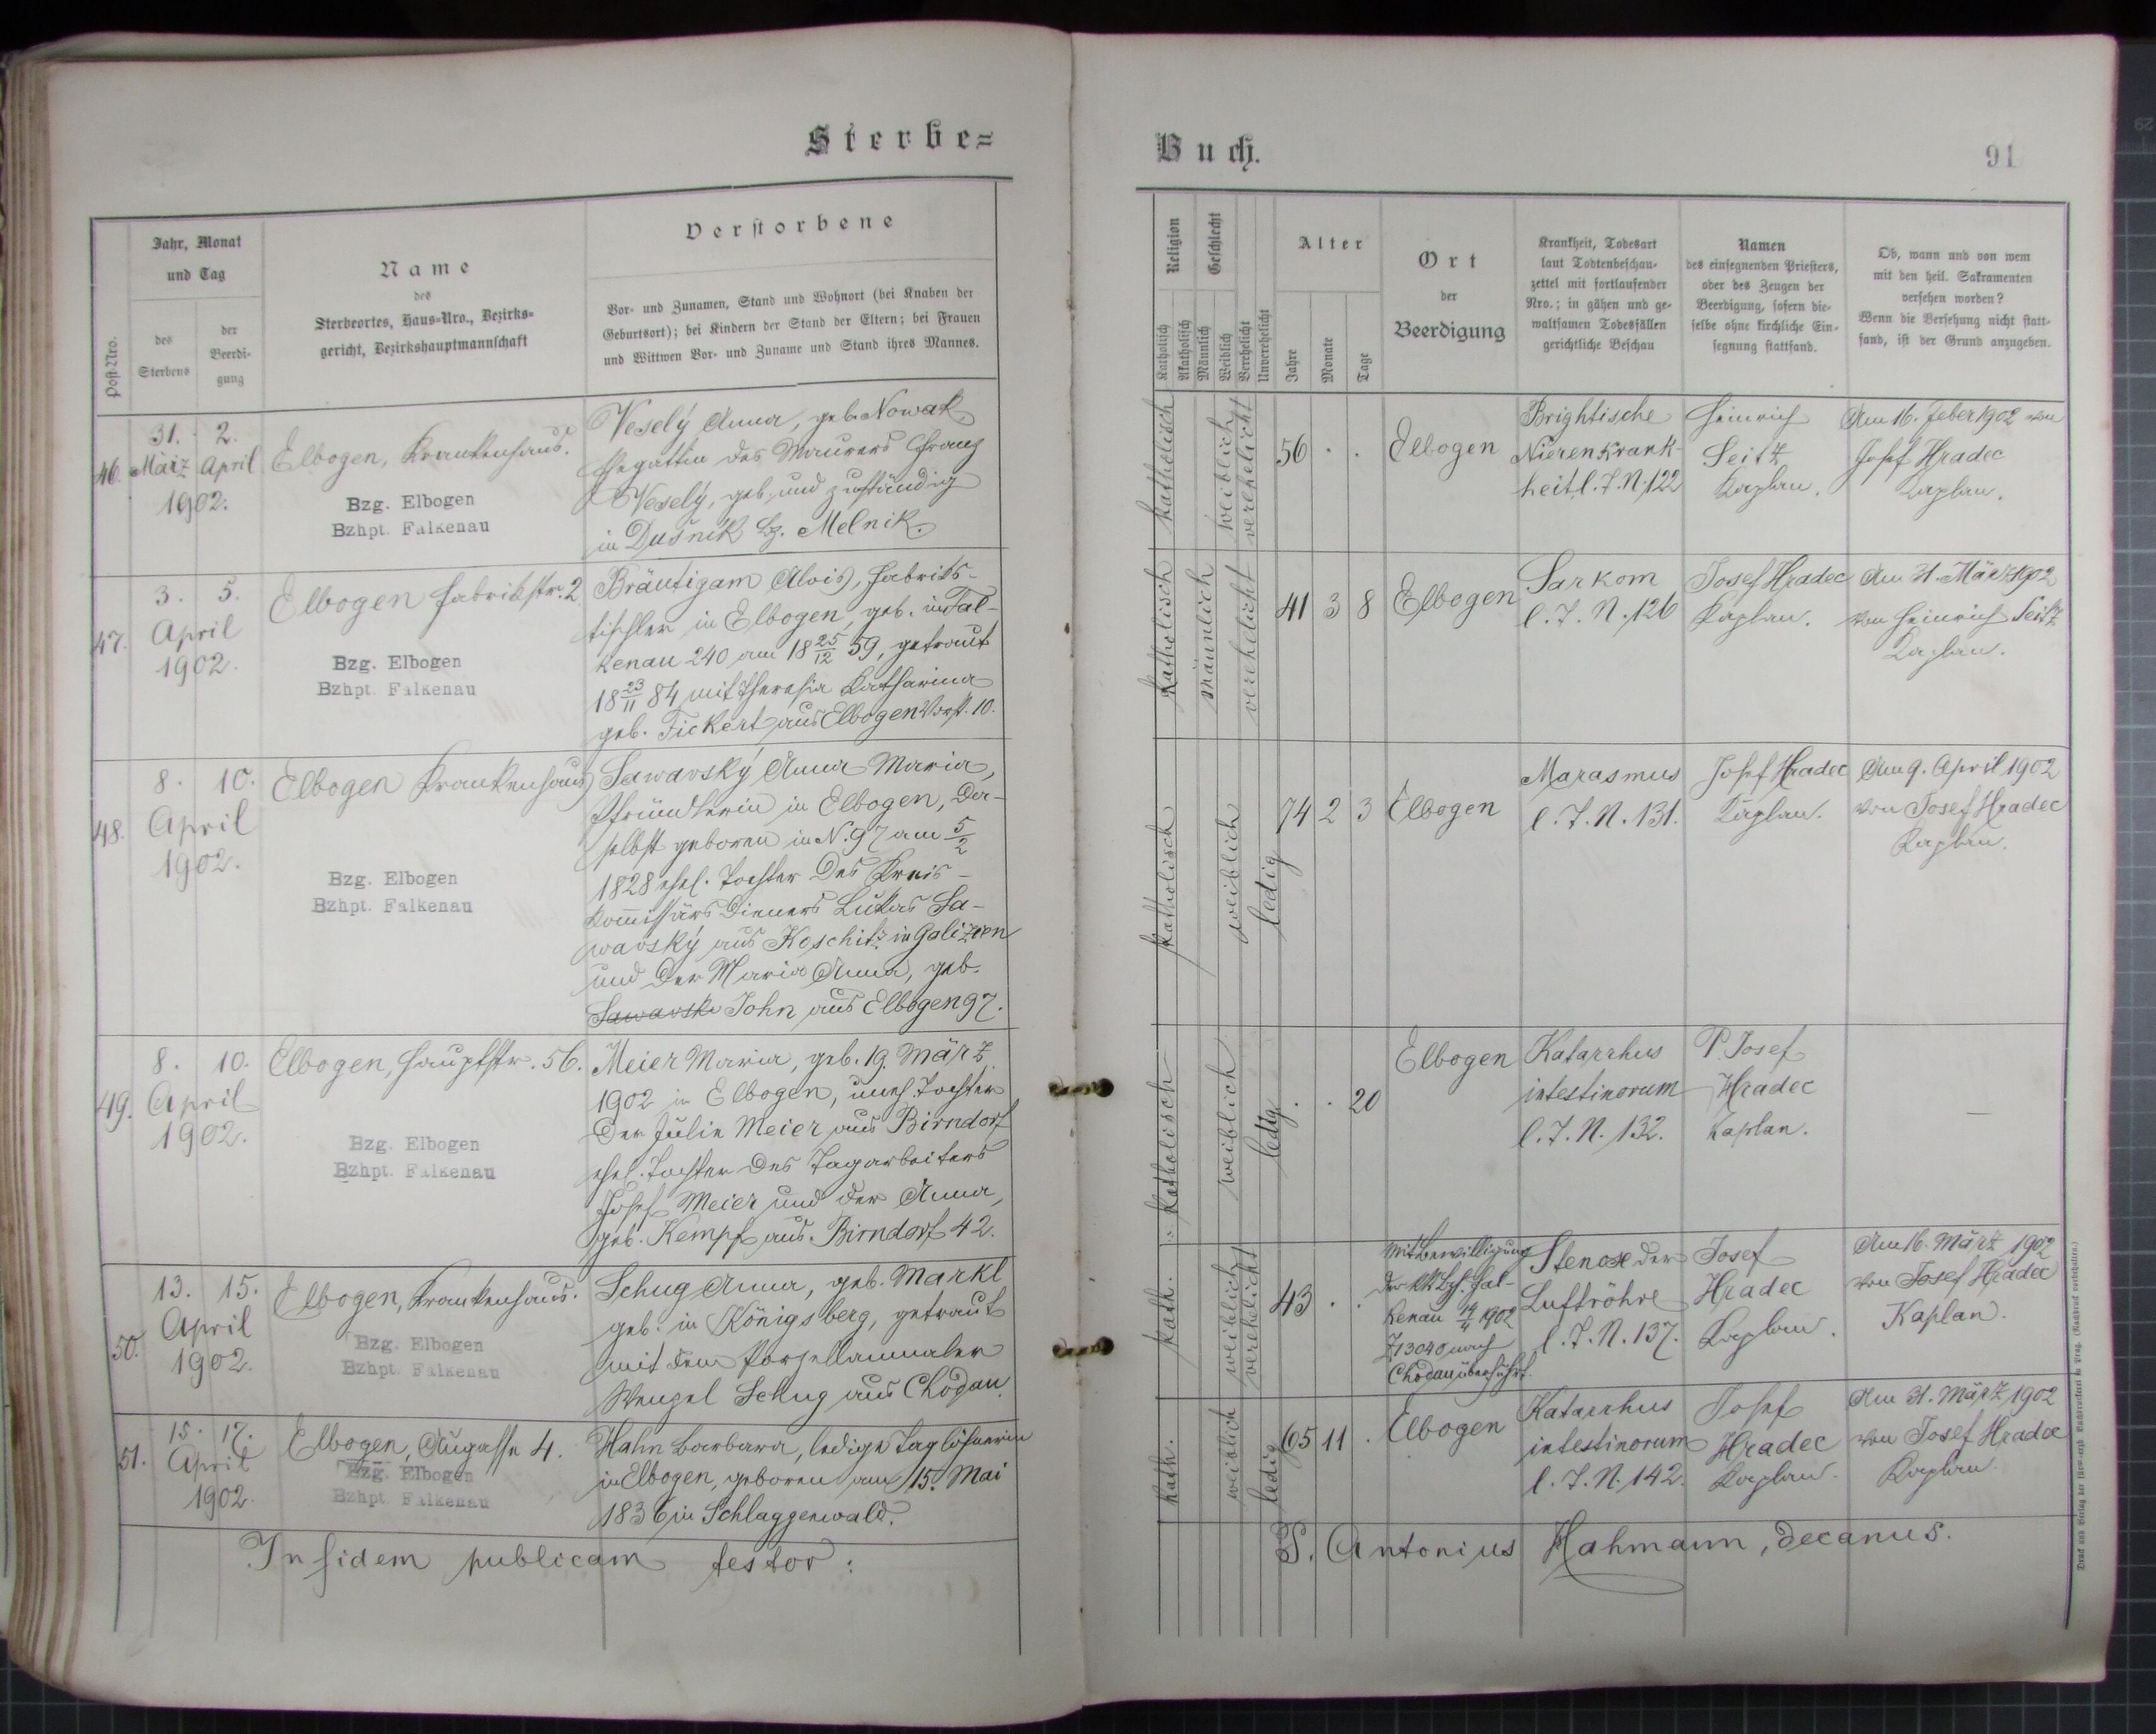 Sterbe=
Jahr, Monat
und Tag
Post-Nro.
des
Sterbens
der
Beerdi-
gung
Name
des
Sterbeortes, Haus-Nro., Bezirks-
gericht, Bezirkshauptmannschaft
Verstorbene
Vor- und Zunamen, Stand und Wohnort (bei Knaben der
Geburtsort); bei Kindern der Stand der Eltern; bei Frauen
und Wittwen Vor- und Zuname und Stand ihres Mannes.
46.
31. 2.
März April
1902.
Elbogen, Krankenhaus.
Bzg. Elbogen
Bzhpt. Falkenau
Veselý Anna, geb. Nowak
Ehegattin des Maurers Franz
Veselý, geb. und zuständig
in Dušnik Bz. Melnik.
47.
3. 5.
April
1902.
Elbogen Fabrikstr. 2.
Bzg. Elbogen
Bzhpt. Falkenau
Bräutigam Alois, Fabriks-
tischler in Elbogen, geb. in Fal-
kenau 240 am 18 25/12 59, getraut
18 23/11 84 mit Theresia Katharina
geb. Fickert aus Elbogen Vorst. 10.
48.
8. 10.
April
1902.
Elbogen Krankenhaus
Bzg. Elbogen
Bzhpt. Falkenau
Sawavský Anna Maria,
Pfründlerin in Elbogen, da-
selbst geboren in N. 97 am 5/2
1828 ehel. Tochter des Kreis-
kommissärs Dieners Lukas Sa-
wavský aus Koschitz in Galizien
und der Maria Anna, geb.
Sawavski John aus Elbogen 97.
49.
8. 10.
April
1902.
Elbogen, Hauptstr. 56.
Bzg. Elbogen
Bzhpt. Falkenau
Meier Maria, geb. 19. März
1902 in Elbogen, uneh. Tochter
der Julie Meier aus Birndorf
ehel. Tochter des Tagarbeiters
Josef Meier und der Anna,
geb. Kempf aus Birndorf 42.
50.
13. 15.
April
1902.
Elbogen, Krankenhaus.
Bzg. Elbogen
Bzhpt. Falkenau
Schug Anna, geb. Markl
geb. in Königsberg, getraut
mit dem Porzellanmaler
Wenzel Schug aus Chodau.
51.
15. 17.
April
1902.
Elbogen, Augasse 4.
Bzg. Elbogen
Bzhpt. Falkenau
Hahn Barbara, ledige Taglöhnerin
in Elbogen, geboren am 15. Mai
1836 in Schlaggenwald.
In fidem publicam testor:
Buch.
91
Religion
Katholisch
Akatholisch
Geschlecht
Männlich
Weiblich
Verehelicht
Unverehelicht
Alter
Jahre
Monate
Tage
Ort
der
Beerdigung
Krankheit, Todesart
laut Todtenbeschau-
zettel mit fortlaufender
Nro.; in gähen und ge-
waltsamen Todesfällen
gerichtliche Beschau
Namen
des einsegnenden Priesters,
oder des Zeugen der
Beerdigung, sofern die-
selbe ohne kirchliche Ein-
segnung stattfand.
Ob, wann und von wem
mit den heil. Sakramenten
versehen worden?
Wenn die Versehung nicht statt-
fand, ist der Grund anzugeben.
katholisch
weiblich
verehelicht
56 . .
Elbogen
Brightische
Nierenkrank-
heit l. J. N. 122
Heinrich
Seitz
Kaplan.
Am 16. Feber 1902 von
Josef Hradec
Kaplan.
katholisch
männlich
verehelicht
41 3 8
Elbogen
Sarkom
l. J. N. 126
Josef Hradec
Kaplan.
Am 31. März 1902
von Heinrich Seitz
Kaplan.
katholisch
weiblich
ledig
74 2 3
Elbogen
Marasmus
l. J. N. 131.
Josef Hradec
Kaplan.
Am 9. April 1902
von Josef Hradec
Kaplan.
katholisch
weiblich
ledig
. . 20
Elbogen
Katarrhus
intestinorum
l. J. N. 132.
P. Josef
Hradec
Kaplan.
—
kath.
weiblich
verehelicht
43 . .
Mit Bewilligung
der kk Bzh. Fal-
kenau 14/4 1902
Z 13040 nach
Chodau überführt.
Stenose der
Luftröhre
l. J. N. 137.
Josef
Hradec
Kaplan.
Am 16. März 1902
von Josef Hradec
Kaplan.
kath.
weiblich
ledig
65 11 .
Elbogen
Katarrhus
intestinorum
l. J. N. 142.
Josef
Hradec
Kaplan.
Am 31. März 1902
von Josef Hradec
Kaplan.
P. Antonius Hahmann, decanus.